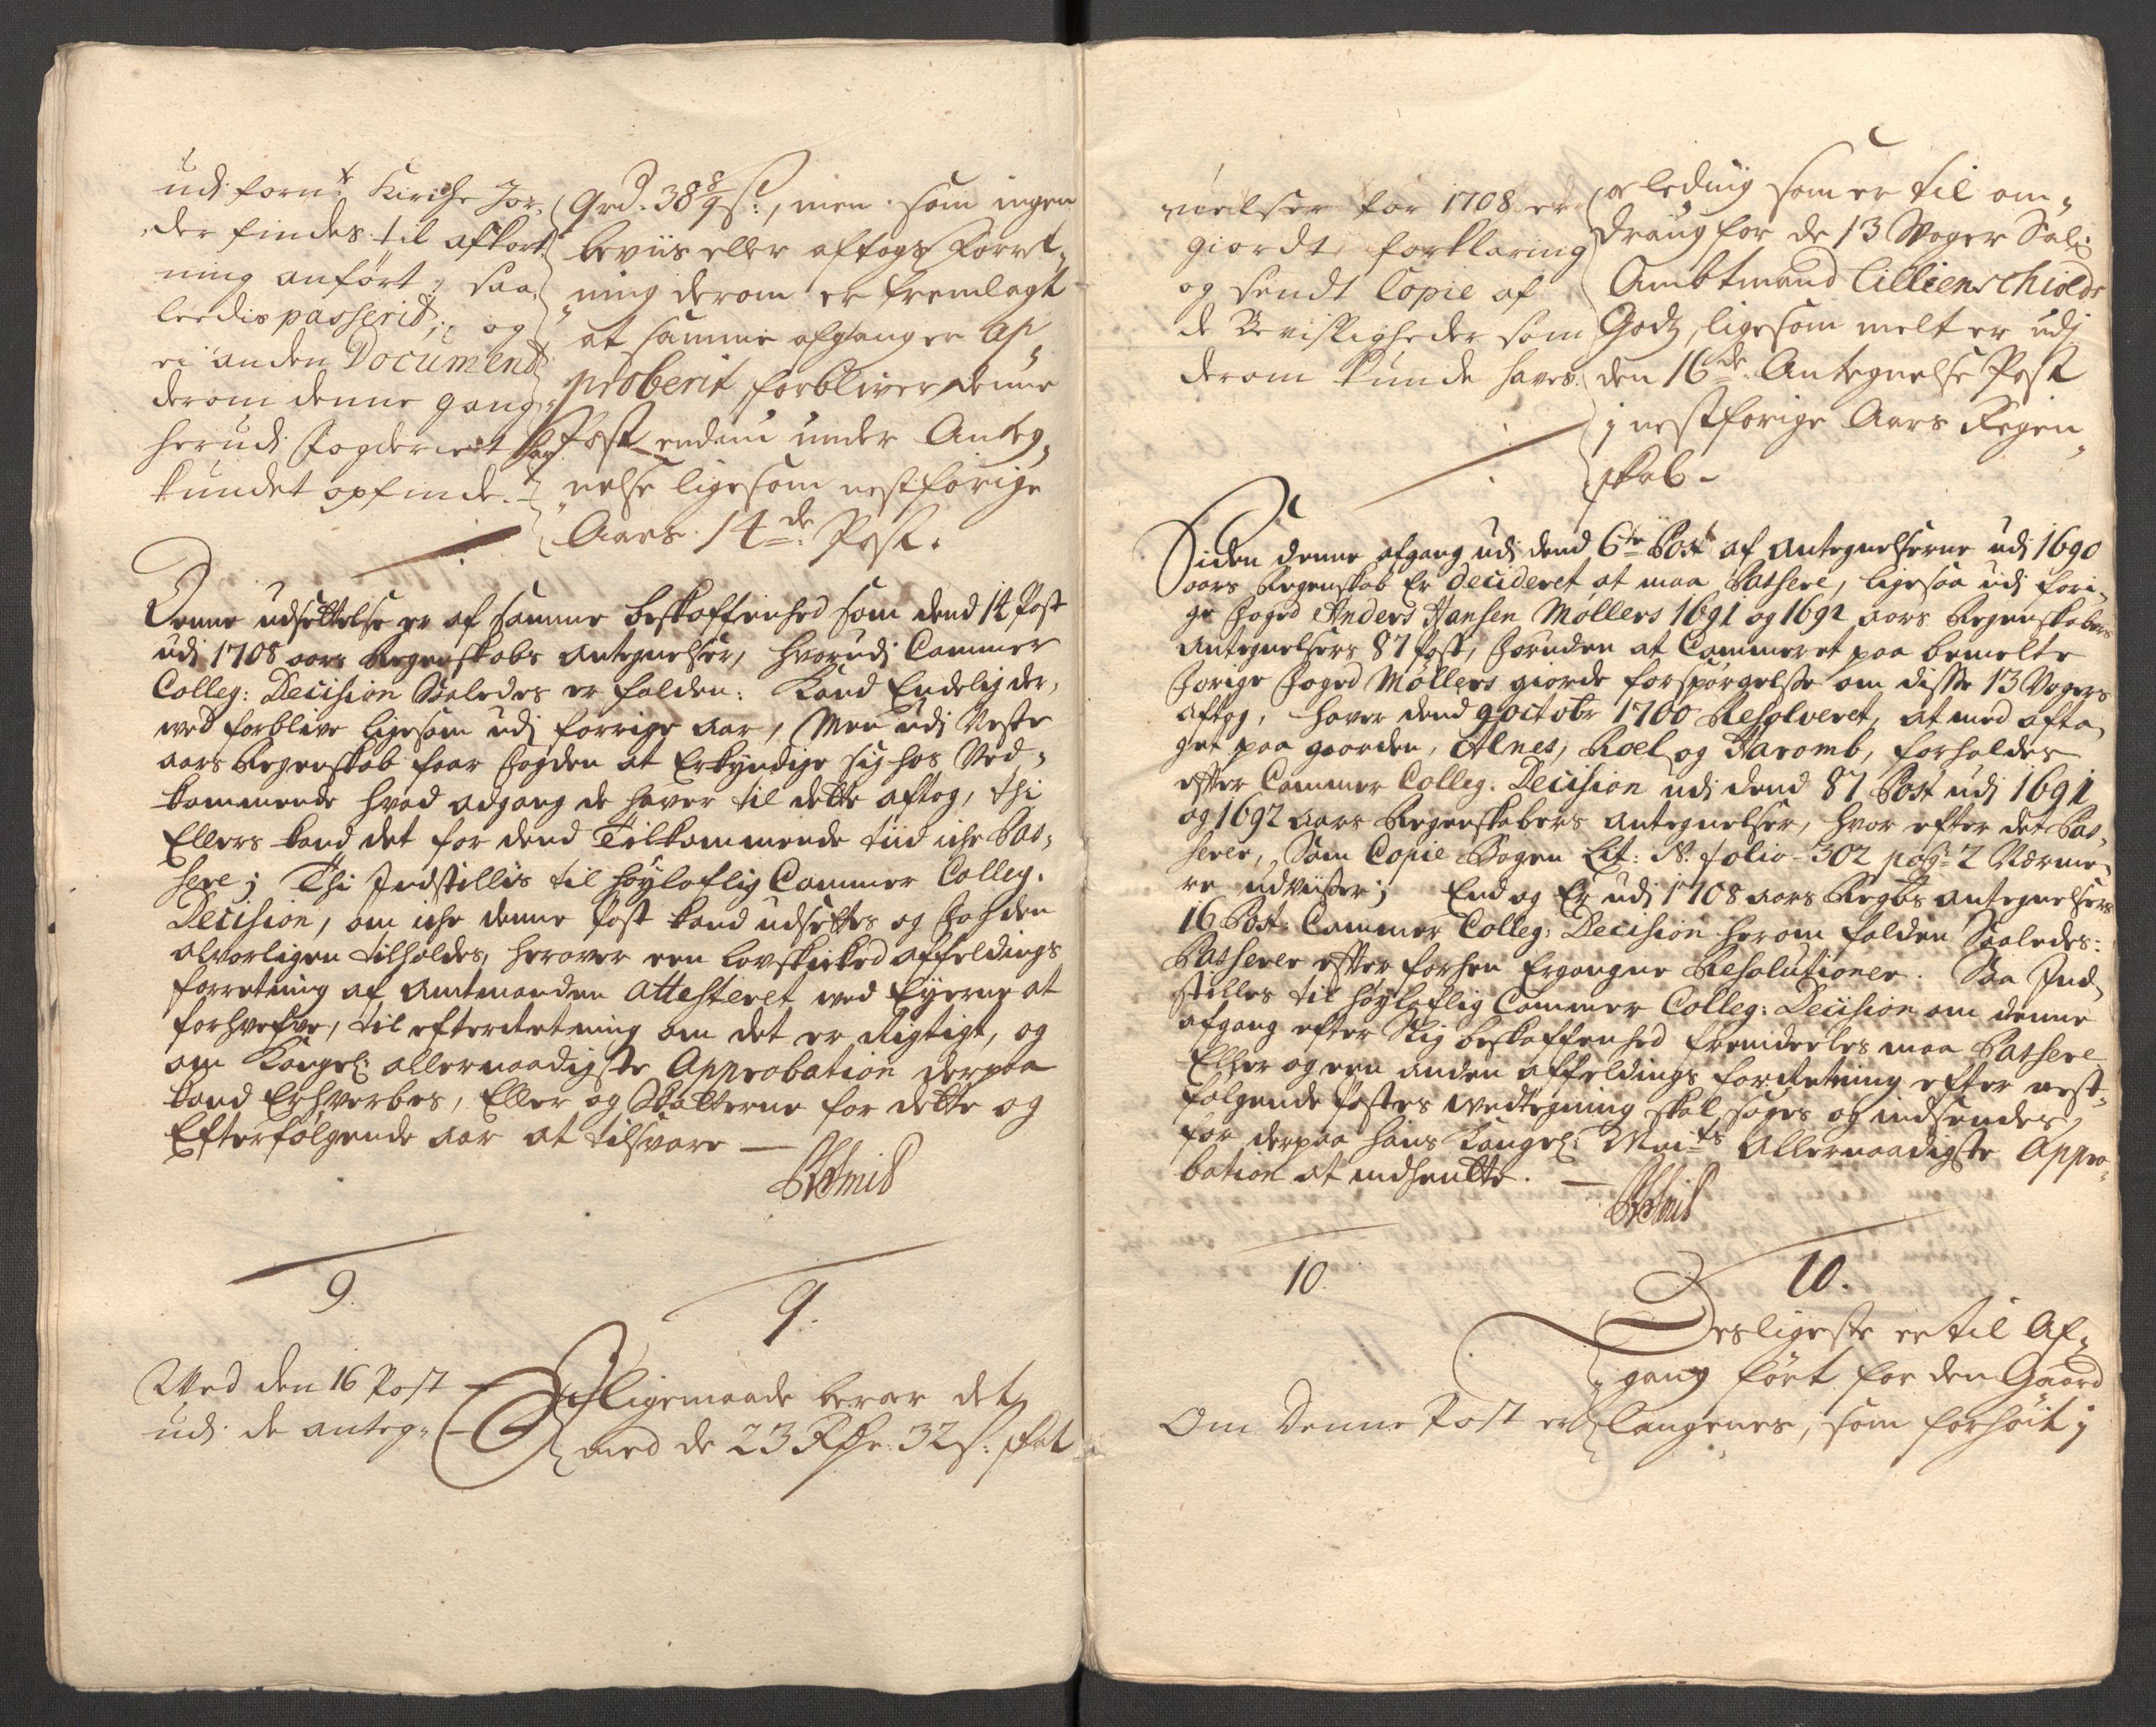 udj fornt. Kirche Jor-
der findes til afkort
ning anført, saa-
leedis passerid, og
ei anden Document
derom denne gang
herudj fogderiet har
kundet opfinde.
9rd. 38 8/9 s:, men som ingen
beviis eller aftogs Forret-
ning derom er fremlagt
at samme afgang er Ap
proberit, forbliver denne
Post endnu under Anteg-
nelse ligesom nestforige
Aars 14de Post.
Denne udsettelse er af samme beskaffenhed som dend 14 Post
udj 1708 aars Regenskabs antegnelser, hvorudj Cammer
Colleg: Decision Saaledes er falden: Kand Endelig der,
wed forblive ligesom udj forrige aar, Men udj Neste
aars Regenskab faar fogden at Erkyndige sig hos Ved-
kommende hvad adgang de haver til dette aftog, thi
Ellers kand det for dend Tilkommende tiid iche Pas-
sere; Thi Indstillis til høyloflig Cammer Colleg.
Decision, om iche denne post kand udsettes og fogden
alvorligen tilholdes, herover een lovskicked affeldings
forretning af Amtmanden attesteret med Eyerne at
forhverfve, til efterretning om det er Rigtigt, og
om Kongel: allernaadigste Approbation derpaa
kand Erhverbes, Eller og Skatterne for dette og
Efterfølgende aar at tilsvare —
9.
Wed den 16 Post
udj de anteg-
9.
Iligemaade berør det
med de 23 Rdr. 32 s: Skat
nelser for 1708 er
giordt forklaring
og sendt Copie af
de Bevisligheder som
derom kunde haves.
og leding som er til om-
draug for de 13 Woger Sal:
Ambtmand Lillienschiolds
Godz, ligesom melt er udj
den 16de Antegnelse Post
j nestforige Aars Regen-
skab -
Siden denne afgang udj dend 6te Post af antegnelserne udj 1690
aars Regenskab Er decideret at maa Passere, ligesaa udj fori-
ge foged Anders Hansen Møllers 1691 og 1692 aars Regenskabers
Antegnelsers 87 post, foruden at Cammeret paa bemelte
forige foged Møllers giorde forspørgelse om disse 13 Vogers
aftog, haver dend 9 octobr 1700 Resolveret, at med afta-
get paa gaarden, Alnes, Roel og Haromb, forholdes
efter Cammer Colleg. Decision udj dend 87 Post udj 1691
og 1692 aars Regenskabers antegnelser, hvor efter det Pas-
serer, Som Copie Bogen Lit: N. folio 302 pag: 2 Nærme-
re udviiser; End og Er udj 1708 aars Regbs antegnelsers
16 Post Cammer Colleg: Decision herom falden Saaledes:
Passerer efter forhen Ergangne Resolutioner. Saa Ind-
stilles til høyloflig Cammer Colleg: Decision om denne
afgang efter Slig beskaffenhed fremdeeles maa Passere
Eller og een anden affeldings forretning efter nest-
følgende Postes wedtegning skal søges og indsendes,
før derpaa hans Kongel: Maits Allernaadigste Appro-
bation at indhente. —
10.
Om denne Post er
10.
Desligeste er til Af-
gang ført for den Gaard
langenes, som forhøit j